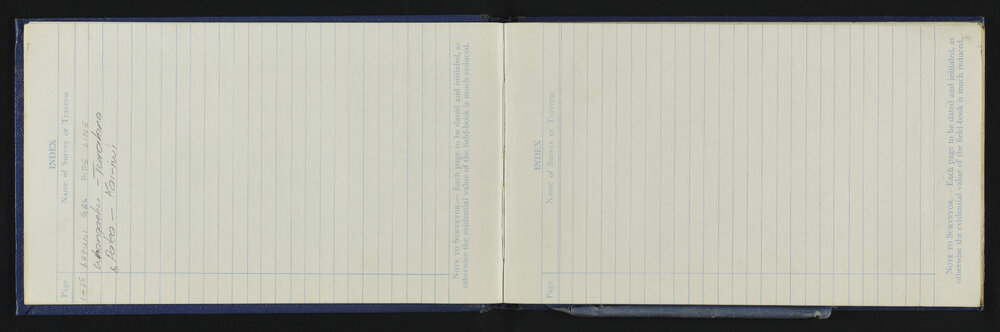 INDEX
Page Name of Survey or Traverse
1-35 KAPUNI GAS PIPE LINE
- Turakina
& Pates - Kai-iwi
NOTE TO SURVEYOR.— Each page to be dated and initialed, as
otherwise the evidential value of the field-book is much reduced.
INDEX
Page Name of Survey or Traverse
NOTE TO SURVEYOR.— Each page to be dated and initialed, as
otherwise the evidential value of the field-book is much reduced.